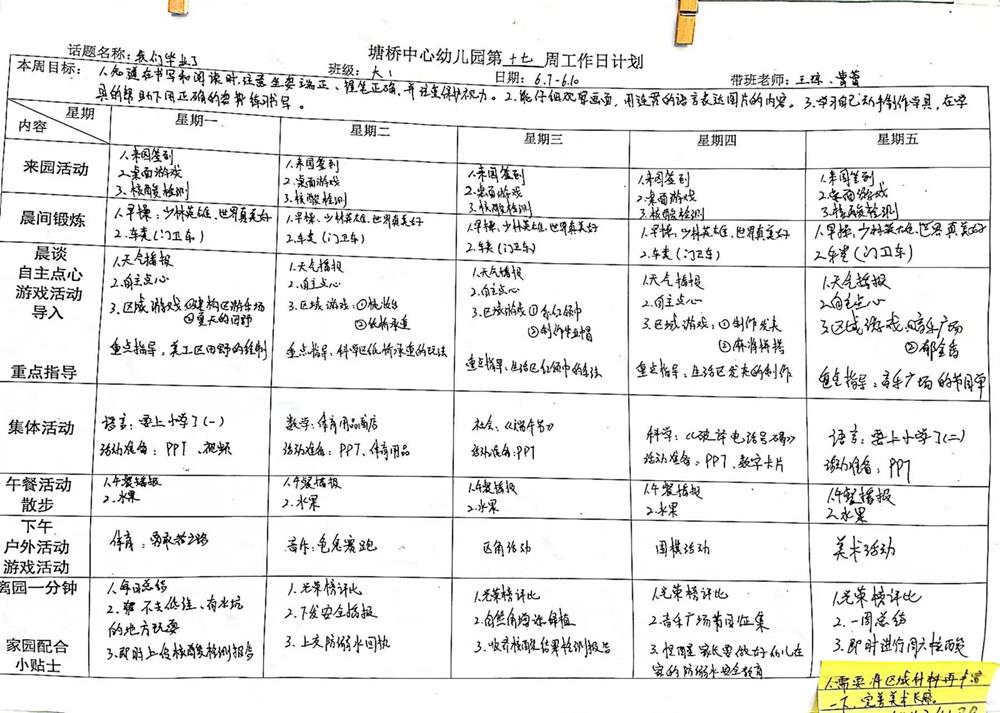 塘桥中心幼儿园第十七周工作日计划
话题名称：我们毕业了
班级：大1
日期：6.7-6.10
带班老师：王 蕾蕾
本周目标：1.知道在书写和阅读时,注意坐姿端正、握笔正确,并注意保护视力。2.能仔细观察画面,用连贯的语言表达图片的内容。3.学习自己动手制作学具,在学
具的帮助下用正确的 练习书写。
星期
内容
星期一 星期二 星期三 星期四 星期五
来园活动
1.来园签到 1.来园签到 1.来园签到 1.来园签到 1.来园签到
2.桌面游戏 2.桌面游戏 2.桌面游戏 2.桌面游戏 2.桌面游戏
3.核酸检测 3.核酸检测 3.核酸检测 3.核酸检测 3.核酸检测
晨间锻炼
1.早操：少林英雄、世界真美好 1.早操、少林英雄、世界真美好 1.早操、少林英雄、世界真美好 1.早操、少林英雄、世界真美好 1.早操、少林英雄、世界真美好
2.车类（门卫车） 2.车类（门卫车） 2.车类（门卫车） 2.车类（门卫车） 2.车类（门卫车）
晨谈
自主点心
游戏活动
导入
重点指导
1.天气播报 1.天气播报 1.天气播报 1.天气播报 1.天气播报
2.自主点心 2.自主点心 2.自主点心 2.自主点心 2.自主点心
3.区域游戏①建构区游乐场 3.区域游戏：① 3.区域游戏① 红领巾 3.区域游戏：①制作发夹 3.区域游戏①音乐广场
②夏天的田野 ②纸桥承重 ②制作毕业帽 ②麻将拼搭 ②郁金香
重点指导：美工区田野的绘制 重点指导：科学区纸桥承重的玩法 重点指导：生活区红领巾的 法 重点指导：生活区发夹的制作 重点指导：音乐广场的节目单
集体活动
语言：要上小学了(一) 数学：体育用品商店 社会：《端午节》 科学：《破译电话号码》 语言：要上小学了(二)
活动准备：PPT、视频 活动准备：PPT、体育用品 活动准备：PPT 活动准备：PPT、数字卡片 活动准备：PPT
午餐活动
散步
1.午餐播报 1.午餐播报 1.午餐播报 1.午餐播报 1.午餐播报
2.水果 2.水果 2.水果 2.水果 2.水果
下午
户外活动
游戏活动
体育：勇敢者之路 音乐：龟兔赛跑 区角活动 围棋活动 美术活动
离园一分钟
家园配合
小贴士
1.每日总结 1.光荣榜评比 1.光荣榜评比 1.光荣榜评比 1.光荣榜评比
2. 不去低洼、有水坑 2.下发安全播报 2.自然角 植 2.音乐广场节目征集 2.一周总结
的地方玩耍
3.即时上传核酸检测报告 3.上交防溺水回执 3.收齐核酸结果检测报告 3.提醒家长要做好幼儿在 3.即时进行周六核酸
家的防溺水安全教育
1.需要将区域材料再丰富
一下,完善美术长廊。